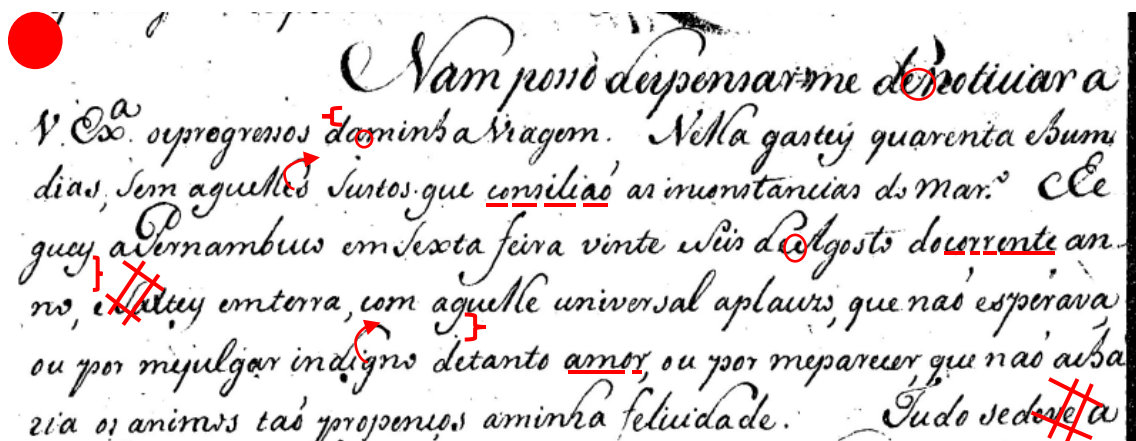 Nam posso despensarme de noticiar a
V. Exa. os progressos da minha viagem. Nella gastey quarenta ehum
dias, sem aquelles sustos que consiliaó as inconstancias do Mar. Che
guey a Pernambuco em Sexta feira vinte eseis de Agosto do corrente an-
no, e saltey em terra, com aquelle universal aplauzo, que naó esperava,
ou por mejulgar indigno detanto amor, ou por meparecer, que naó acha
ria os animos taó propensos aminha felicidade. Tudo sedeve a